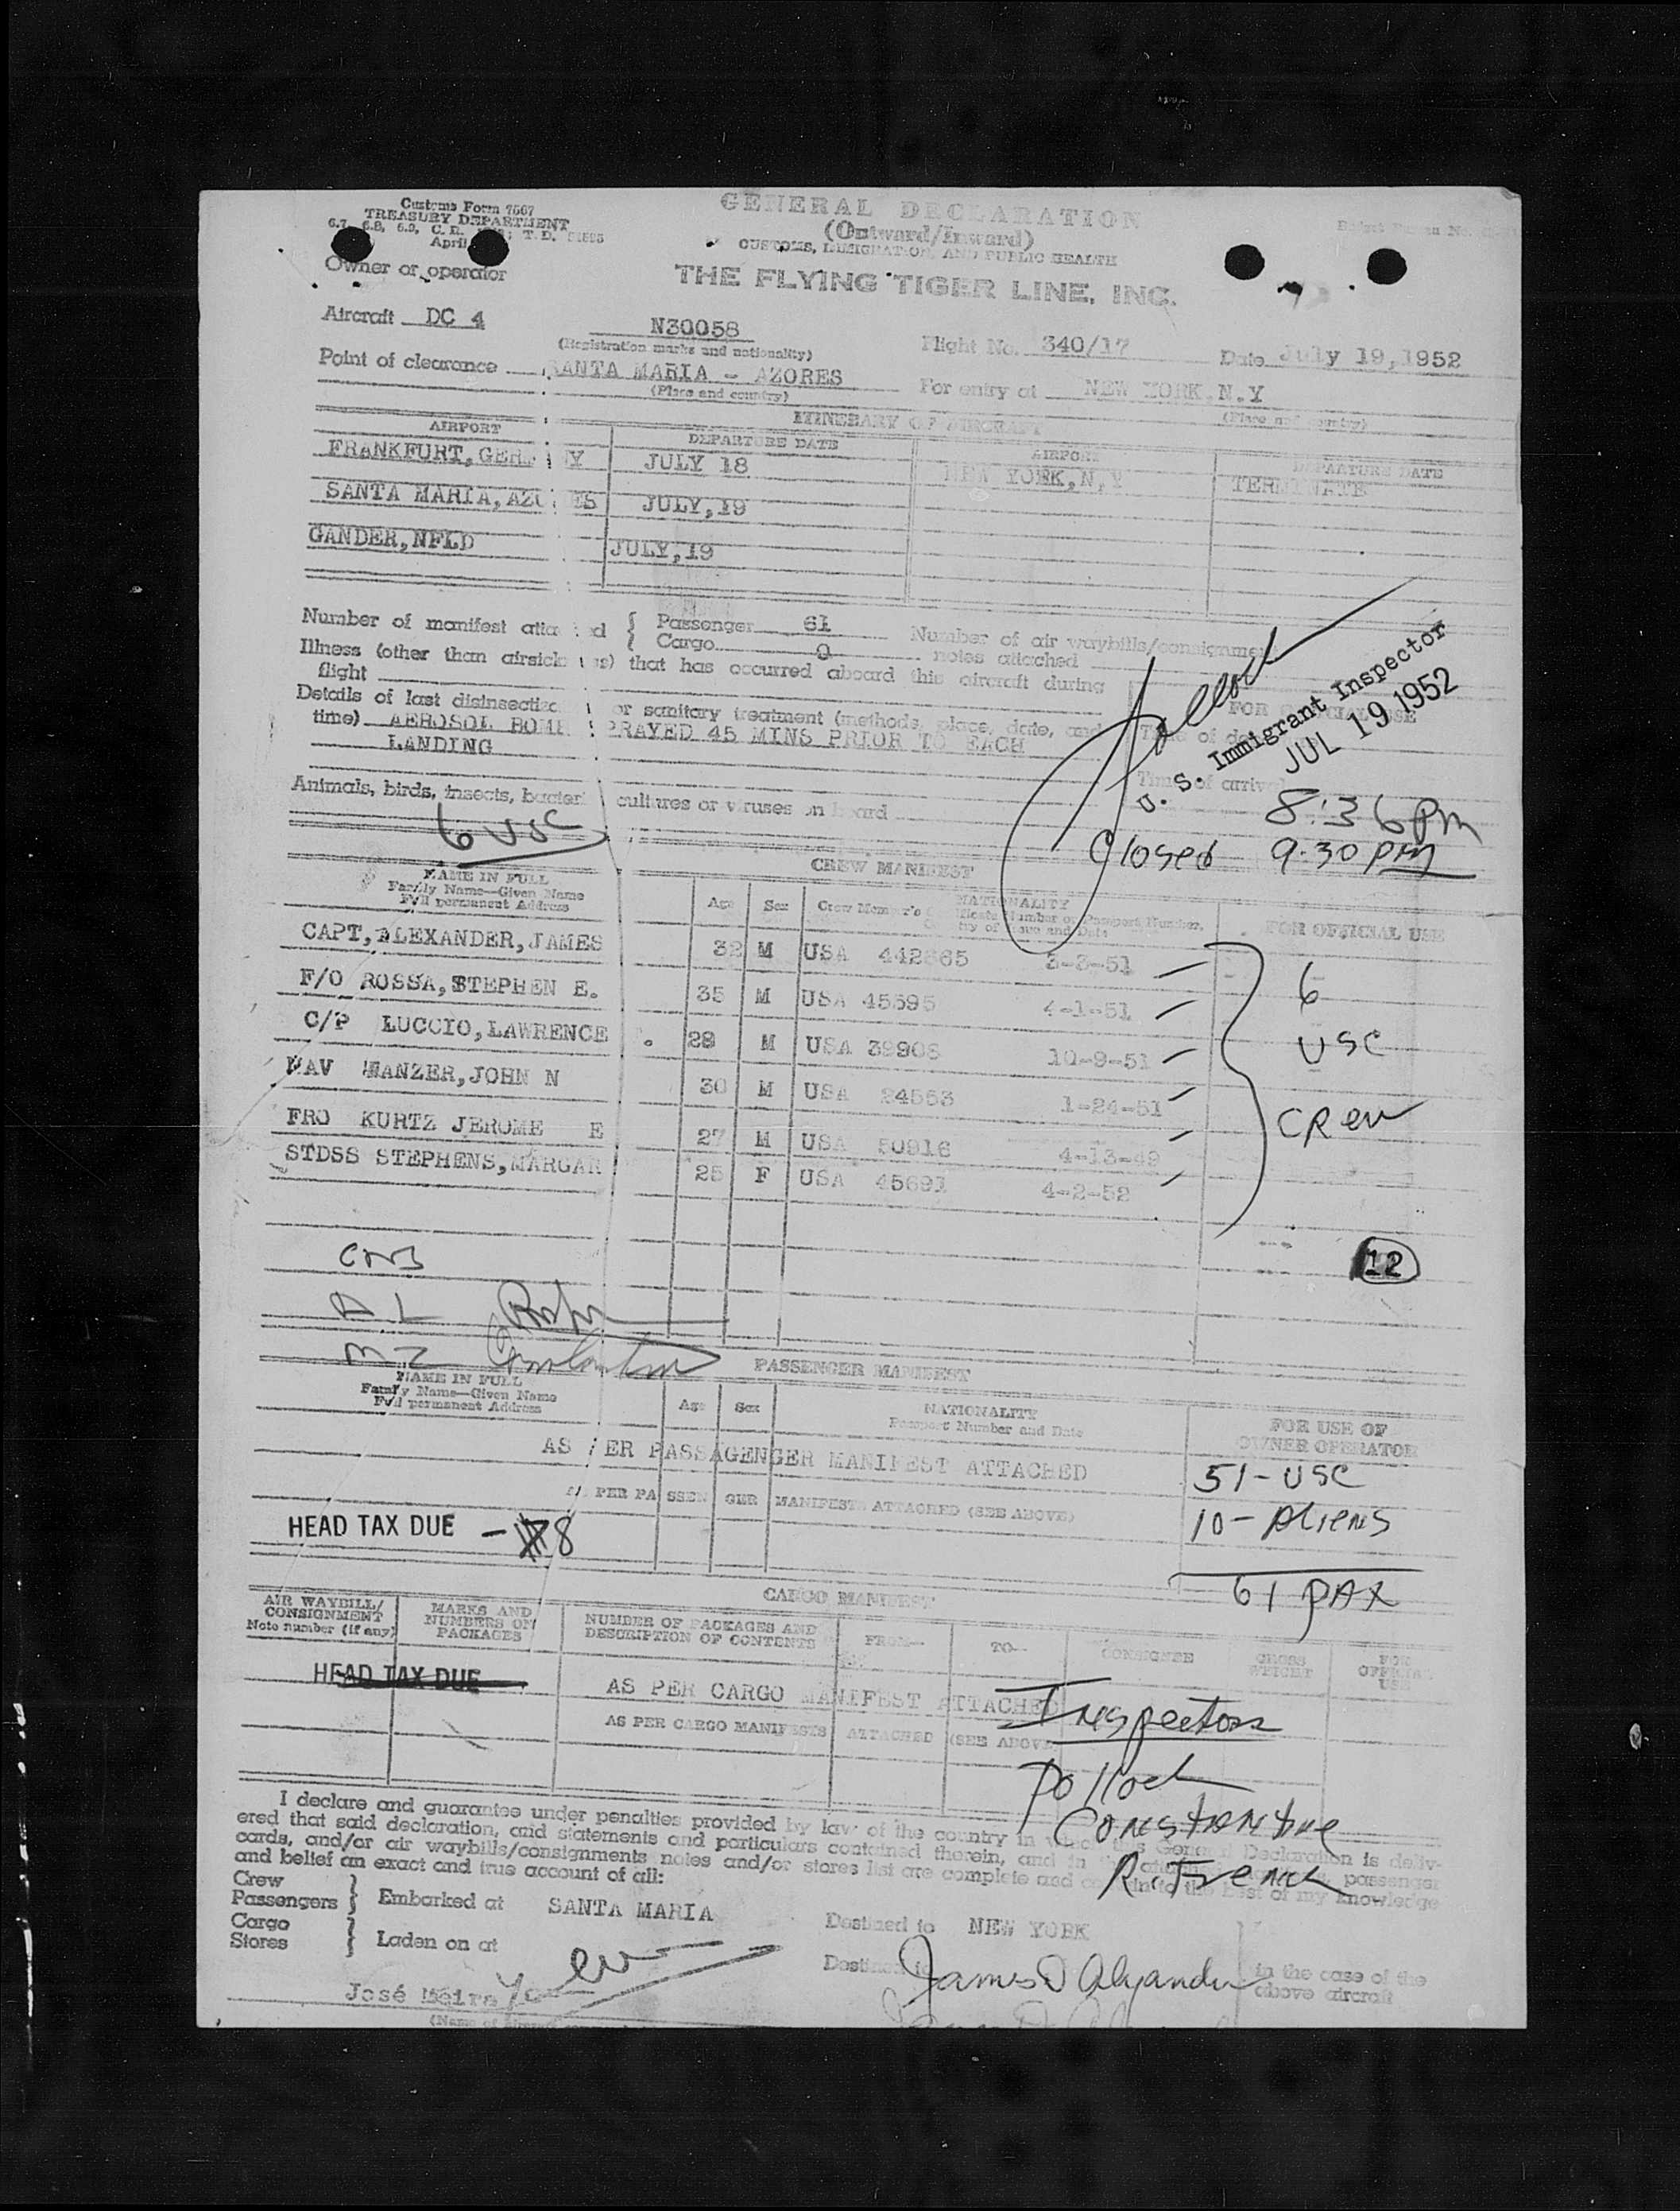 Customs Form 7507
TREASURY DEPARTMENT
April
GENERAL DECLARATION
(Outward/Inward)
CUSTOMS, IMMIGRATION, AND PUBLIC HEALTH
Owner or operator
THE FLYING TIGER LINE, INC.
Aircraft DC 4 N30058 Flight No. 340/17 Date July 19,1952
(Registration marks and nationality)
Point of clearance SANTA MARIA - AZORES For entry at NEW YORK.N.Y
(Place and country) (Place and country)
ITINERARY OF AIRCRAFT
AIRPORT DEPARTURE DATE AIRPORT DEPARTURE DATE
FRANKFURT,GER Y JULY 18 NEW YORK,N,Y TERMINATE
SANTA MARIA,AZ ES JULY,19
GANDER,NFLD JULY,19
Number of manifest atta ed { Passenger 61 Number of air waybills/consignment
{ Cargo 0 notes attached
Illness (other than airsick s) that has occurred aboard this aircraft during
flight
Pollock
U. S. Immigrant Inspector
JUL 19 1952
FOR OFFICIAL USE
Details of last disinsectiz or sanitary treatment (methods, place, date, and
time) AEROSOL BOMB PRAYED 45 MINS PRIOR TO EACH
LANDING
Time of arriv
8:36 PM
Animals, birds, insects, bacteri cultures or viruses on board
6 USC
Closed 9:30 PM
CREW MANIFEST
NAME IN FULL
Family Name—Given Name
Full permanent Address
Age Sex NATIONALITY
Crew Member's
FOR OFFICIAL USE
CAPT, ALEXANDER, JAMES 32 M USA 3-3-51
F/O ROSSA, STEPHEN E. 35 M USA 45595 4-1-51
C/P LUCCIO, LAWRENCE . 28 M USA 10-9-51
NAV WANZER, JOHN N 30 M USA 1-24-51
FRO KURTZ JEROME E 27 M USA 50916 4-13-49
STDSS STEPHENS, MARGAR 25 F USA 45691 4-2-52
6
USC
CREW
12
PASSENGER MANIFEST
NAME IN FULL
Family Name—Given Name
Full permanent Address
Age Sex NATIONALITY
Passport Number and Date
FOR USE OF
OWNER OPERATOR
AS ER PASSAGENGER MANIFEST ATTACHED
51 - USC
PER PA SSEN GER MANIFESTS ATTACHED (SEE ABOVE)
10 - Aliens
HEAD TAX DUE - 8
61 PAX
CARGO MANIFEST
AIR WAYBILL/
CONSIGNMENT
Note number (if any)
MARKS AND
NUMBERS ON
PACKAGES
NUMBER OF PACKAGES AND
DESCRIPTION OF CONTENTS
FROM— TO— CONSIGNEE GROSS
WEIGHT
FOR
OFFICIAL
USE
HEAD TAX DUE
AS PER CARGO MANIFEST ATTACHED
AS PER CARGO MANIFESTS ATTACHED (SEE ABOVE
Inspectors
Pollock
Constantine
R. French
I declare and guarantee under penalties provided by law of the country in which this General Declaration is deliv-
ered that said declaration, and statements and particulars contained therein, and in passenger
cards, and/or air waybills/consignments notes and/or stores list are complete and to the best of my knowledge
and belief an exact and true account of all:
Crew
Passengers } Embarked at SANTA MARIA Destined to NEW YORK
Cargo
Stores } Laden on at Destined to
James D Alexander in the case of the
above aircraft
José Meira